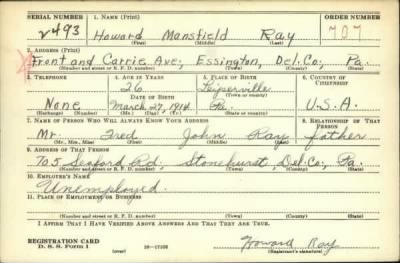 SERIAL NUMBER 1. NAME (Print) ORDER NUMBER
2493 Howard Mansfield Ray 707
(First) (Middle) (Last)
2. ADDRESS (Print)
Front and Carrie Ave; Essington, Del. Co; Pa.
(Number and street or R. F. D. number) (Town) (County) (State)
3. TELEPHONE 4. AGE IN YEARS 5. PLACE OF BIRTH 6. COUNTRY OF CITIZENSHIP
26 Leiperville
DATE OF BIRTH (Town or county)
None March 27, 1914 Pa. U.S.A.
(Exchange) (Number) (Mo.) (Day) (Yr.) (State or country)
7. NAME OF PERSON WHO WILL ALWAYS KNOW YOUR ADDRESS 8. RELATIONSHIP OF THAT PERSON
Mr. Fred John Ray father
(Mr., Mrs., Miss) (First) (Middle) (Last)
9. ADDRESS OF THAT PERSON
705 Seaford Rd, Stonehurst, Del. Co, Pa.
(Number and street or R. F. D. number) (Town) (County) (State)
10. EMPLOYER'S NAME
Unemployed.
11. PLACE OF EMPLOYMENT OR BUSINESS
(Number and street or R. F. D. number) (Town) (County) (State)
I AFFIRM THAT I HAVE VERIFIED ABOVE ANSWERS AND THAT THEY ARE TRUE.
REGISTRATION CARD Howard Ray
D. S. S. Form 1 (over) (Registrant's signature)